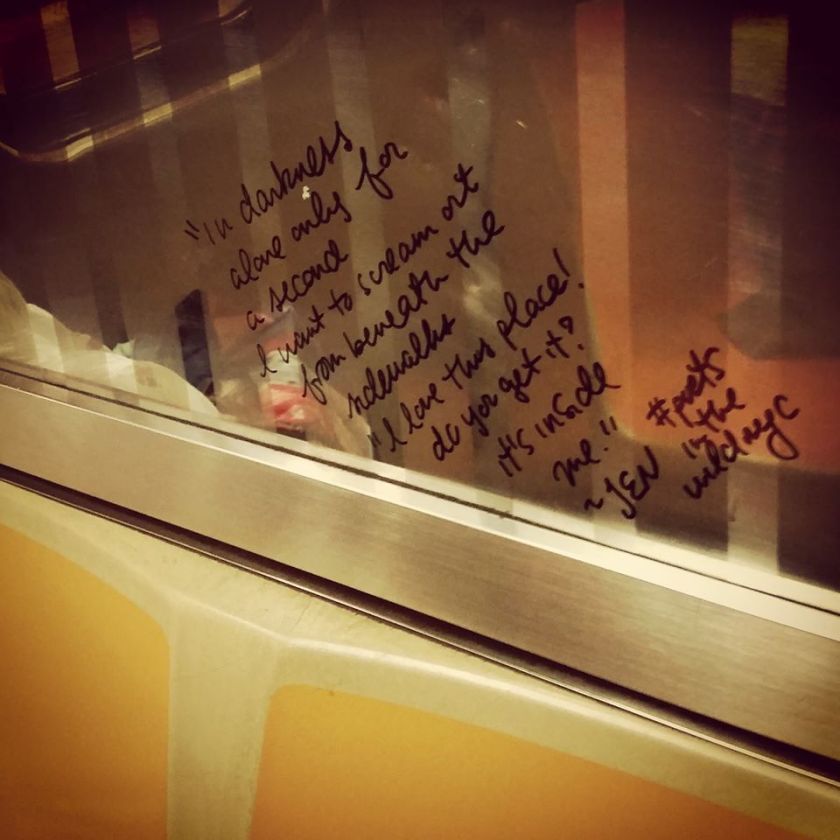 "In darkness
alone only for
a second
I want to scream out
from beneath the
sidewalks
"I love this place!
do you get it?
it's inside
me!"
~ JEN
#poets
in the
wildnyc